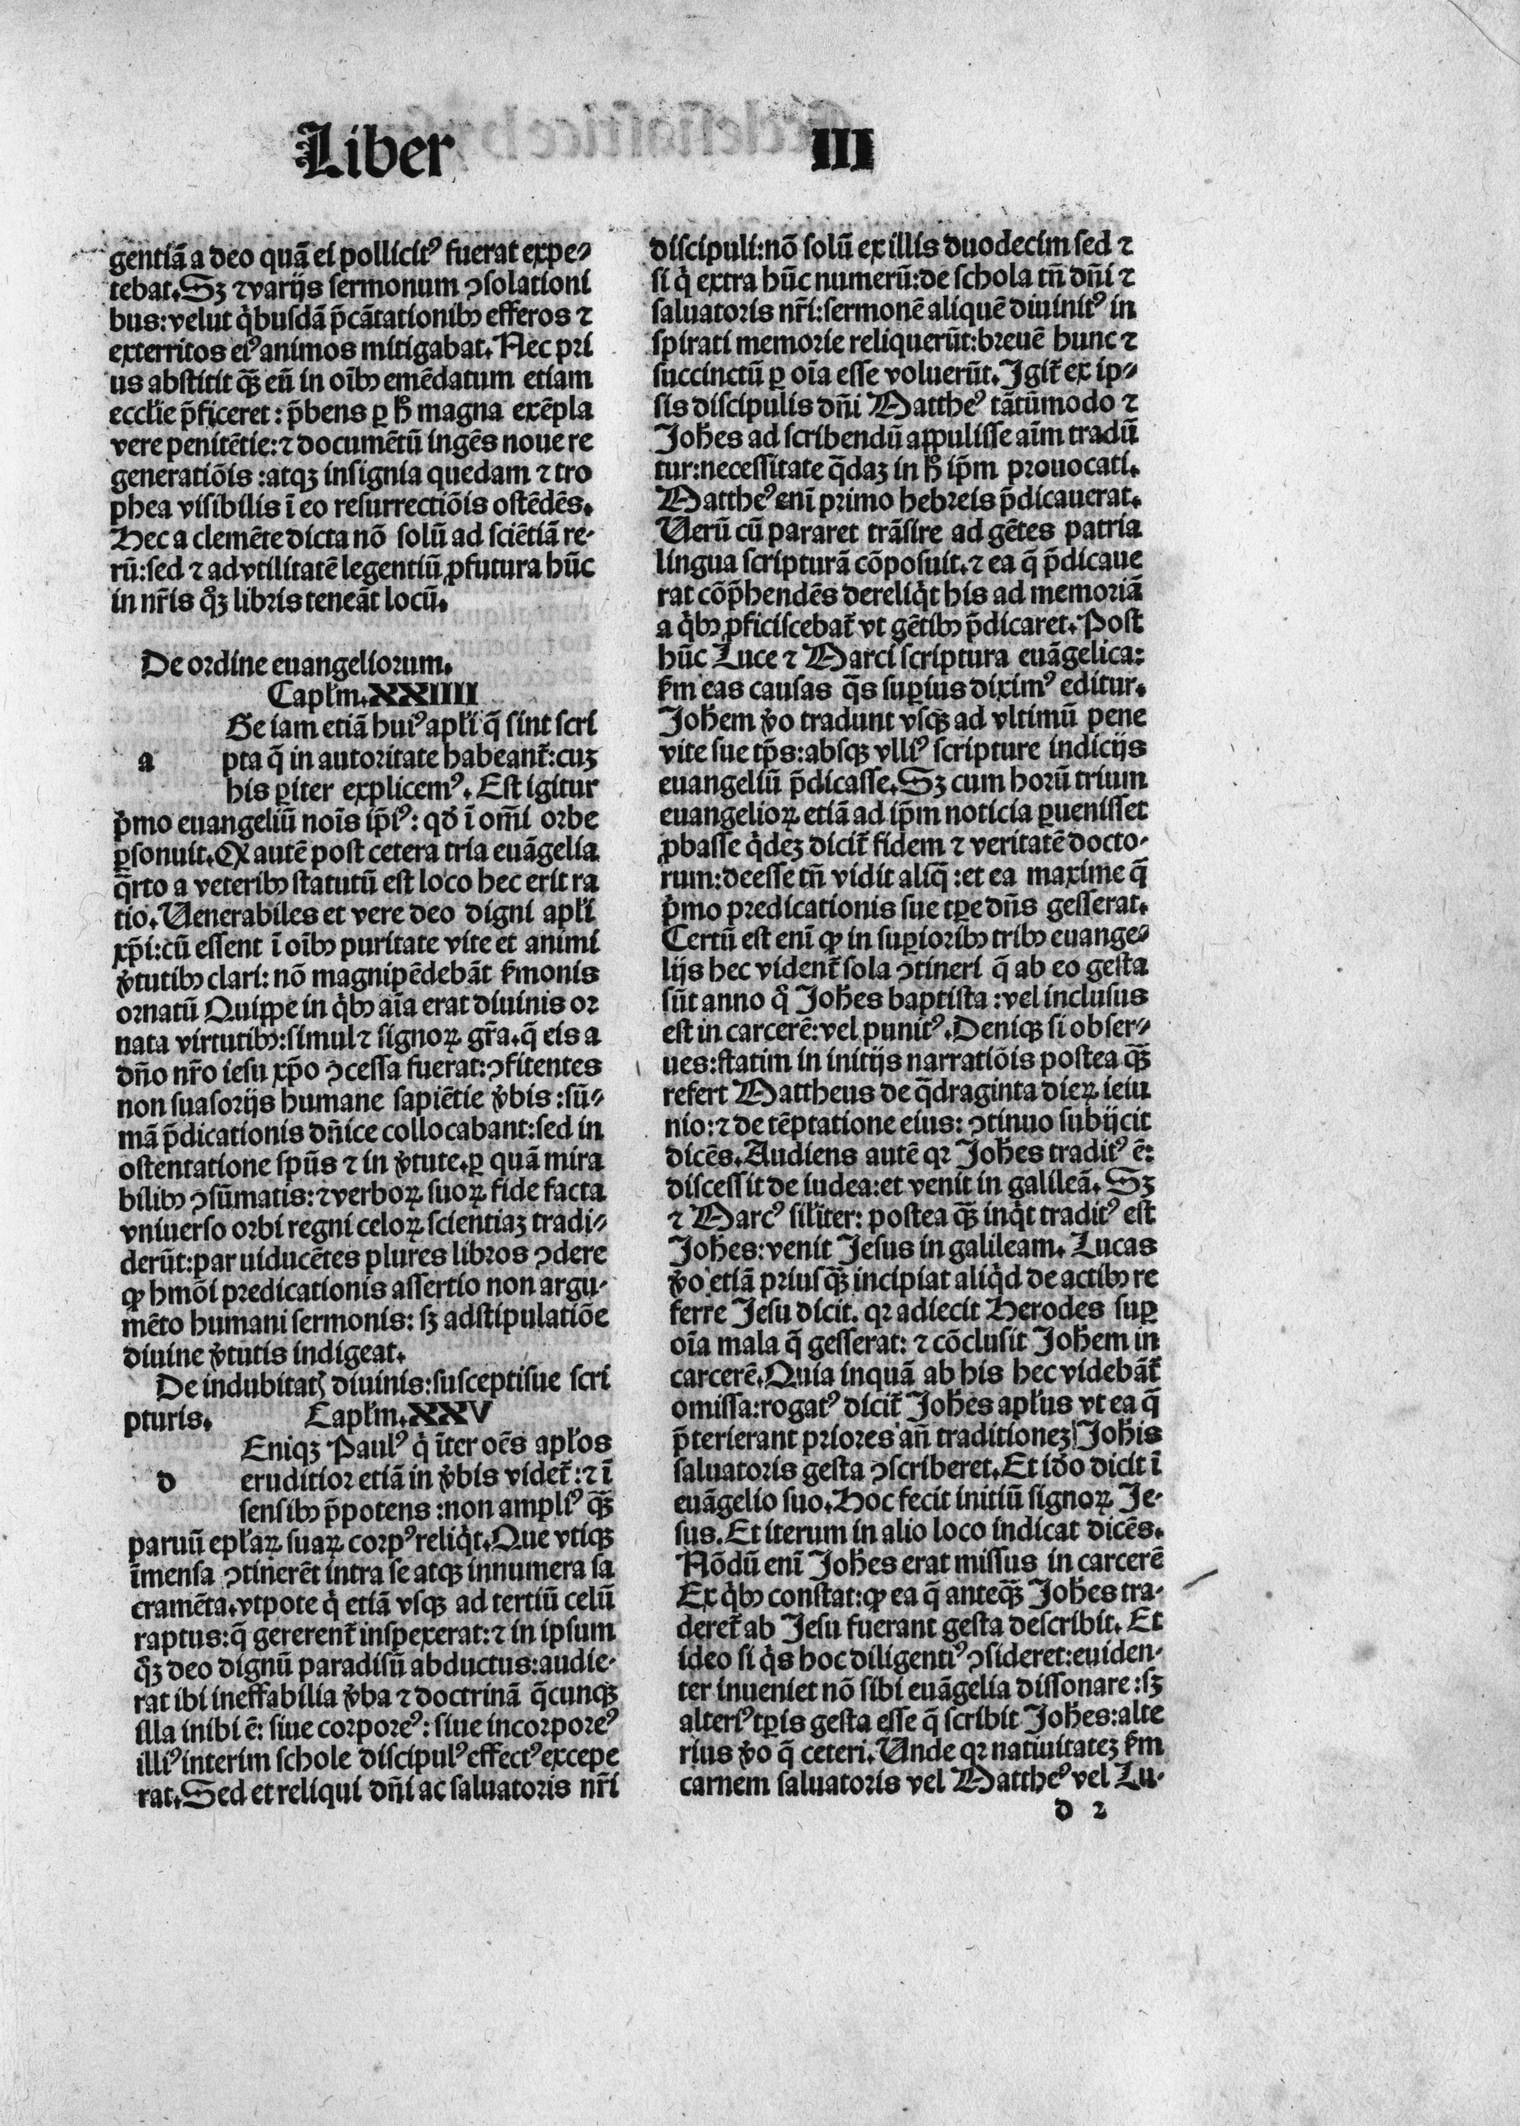 Liber III
gentiā a deo quā ei pollicitꝰ fuerat expe⸗
tebat. Sꝫ ⁊ varijs sermonum ↄsolationi
bus: velut q̇busdā p̄cātationibꝫ efferos ⁊
exterritos eiꝰ animos mitigabat. Nec pri
us abstitit qꝫ̄ eū in oībꝫ emēdatum etiam
ecclie p̄ficeret: p̄bens ꝑ hͦ magna exēpla
vere penitētie: ⁊ documētū ingēs noue re
generatiōis: atqꝫ insignia quedam ⁊ tro
phea visibilis ī eo resurrectiōis ostēdēs.
Hec a clemēte dicta nō solū ad sciētiā re⸗
rū: sed ⁊ ad vtilitatē legentiū ꝓfutura hūc
in nr̄is qͦꝫ libris teneāt locū.
De ordine euangeliorum.
Capłm. XXIIII
a
Ge iam etiā huiꝰ apłi q̄ sint scri
pta q̄ in autoritate habeant̄: cuꝫ
his ꝑiter explicemꝰ. Est igitur
pͥmo euangeliū noīs ip̄iꝰ: qd̄ ī om̄i orbe
ꝑsonuit. Qꝫ autē post cetera tria euāgelia
q̄rto a veteribꝫ statutū est loco hec erit ra
tio. Uenerabiles et vere deo digni apłi
xp̄i: cū essent ī oībꝫ puritate vite et animi
v̓tutibꝫ clari: nō magnipēdebāt s̓monis
ornatū Quippe in q̇bꝫ aīa erat diuinis or
nata virtutibꝫ: simul ⁊ signoꝝ gr̄a. q̄ eis a
dn̄o nr̄o iesu xp̄o ↄcessa fuerat: ↄfitentes
non suasorijs humane sapiētie v̓bis: sū⸗
mā p̄dicationis dn̄ice collocabant: sed in
ostentatione spūs ⁊ in v̓tute. ꝑ quā mira
bilibꝫ ↄsūmatis: ⁊ verboꝝ suoꝝ fide facta
vniuerso orbi regni celoꝝ scientiaꝫ tradi⸗
derūt: par uiducētes plures libros ↄdere
ꝙ hmōi predicationis assertio non argu⸗
mēto humani sermonis: sꝫ adstipulatiōe
diuine v̓tutis indigeat.
De indubitatꝭ diuinis: susceptisue scri
pturis. Capłm. XXV
d
Eniqꝫ Paulꝰ q̇ īter oēs apłos
eruditior etiā in v̓bis videt̄: ⁊ ī
sensibꝫ p̄potens: non ampliꝰ qꝫ̄
paruū epłaꝝ suaꝝ corpꝰ reliq̇t. Que vtiqꝫ
īmensa ↄtinerēt intra se atqꝫ innumera sa
cramēta. vtpote q̇ etiā vsqꝫ ad tertiū celū
raptus: q̄ gererent̄ inspexerat: ⁊ in ipsum
qͦꝫ deo dignū paradisū abductus: audie⸗
rat ibi ineffabilia v̓ba ⁊ doctrinā q̄cunqꝫ
illa inibi ē: siue corporeꝰ: siue incorporeꝰ
illiꝰ interim schole discipulꝰ effectꝰ excepe
rat. Sed et reliqui dn̄i ac saluatoris nr̄i
discipuli: nō solū ex illis duodecim sed ⁊
si q̇ extra hūc numerū: de schola tn̄ dn̄i ⁊
saluatoris nr̄i: sermonē aliquē diuinitꝰ in
spirati memorie reliquerūt: breuē hunc ⁊
succinctū ꝑ oīa esse voluerūt. Igit̄ ex ip⸗
sis discipulis dn̄i Mattheꝰ tātūmodo ⁊
Joh̄es ad scribendū appulisse aīm tradū
tur: necessitate q̄daꝫ in hͦ ip̄m prouocati.
Mattheꝰ enī primo hebreis p̄dicauerat.
Uerū cū pararet trāsire ad gētes patria
lingua scripturā cōposuit. ⁊ ea q̄ p̄dicaue
rat cōp̄hendēs dereliq̇t his ad memoriā
a q̇bꝫ ꝓficiscebat̄ vt gētibꝫ p̄dicaret. Post
hūc Luce ⁊ Marci scriptura euāgelica:
s̓m eas causas q̄s suꝑius diximꝰ editur.
Joh̄em v̓o tradunt vsqꝫ ad vltimū pene
vite sue tp̄s: absqꝫ vlliꝰ scripture indicijs
euangeliū p̄dicasse. Sꝫ cum horū trium
euangelioꝝ etiā ad ip̄m noticia ꝑuenisset
ꝓbasse q̇deꝫ dicit̄ fidem ⁊ veritatē docto⸗
rum: deesse tn̄ vidit aliq̄: et ea maxime q̄
pͥmo predicationis sue tꝑe dn̄s gesserat.
Certū est enī ꝙ in suꝑioribꝫ tribꝫ euange⸗
lijs hec vident̄ sola ↄtineri q̄ ab eo gesta
sūt anno qͦ Joh̄es baptista: vel inclusus
est in carcerē: vel punitꝰ. Deniqꝫ si obser⸗
ues: statim in initijs narratiōis postea qꝫ̄
refert Mattheus de q̄draginta dieꝝ ieiu
nio: ⁊ de tēptatione eius: ↄtinuo subijcit
dicēs. Audiens autē qꝛ Joh̄es traditꝰ ē:
discessit de iudea: et venit in galileā. Sꝫ
⁊ Marcꝰ siliter: postea qꝫ̄ inq̇t traditꝰ est
Joh̄es: venit Jesus in galileam. Lucas
v̓o etiā priusqꝫ̄ incipiat aliq̇d de actibꝫ re
ferre Jesu dicit. qꝛ adiecit Herodes suꝑ
oīa mala q̄ gesserat: ⁊ cōclusit Joh̄em in
carcerē. Quia inquā ab his hec videbāt̄
omissa: rogatꝰ dicit̄ Joh̄es apłus vt ea q̄
p̄terierant priores an̄ traditioneꝫ Joh̄is
saluatoris gesta ↄscriberet. Et id̓o dicit ī
euāgelio suo. Hoc fecit initiū signoꝝ Je⸗
sus. Et iterum in alio loco indicat dicēs.
Nōdū enī Joh̄es erat missus in carcerē
Ex q̇bꝫ constat: ꝙ ea q̄ anteqꝫ̄ Joh̄es tra⸗
deret̄ ab Jesu fuerant gesta describit. Et
ideo si q̇s hoc diligentiꝰ ↄsideret: euiden⸗
ter inueniet nō sibi euāgelia dissonare: sꝫ
alteriꝰ tꝑis gesta esse q̄ scribit Joh̄es: alte
rius v̓o q̄ ceteri. Unde qꝛ natiuitateꝫ s̓m
carnem saluatoris vel Mattheꝰ vel Lu⸗
d 2